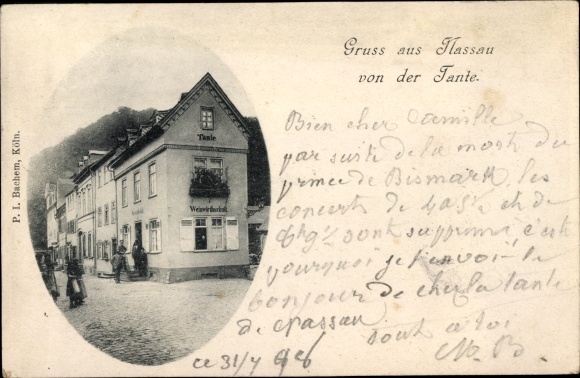 Gruss aus Nassau
von der Tante.
P. I. Bachem, Köln.
Tante
Weinwirthschaft
Bien cher Camille
par suite de la mort du
prince de Bismark, les
concert de 4 a 5½ et de
sont supprimé c'est
pourquoi je t'envoi le
bonjour de chez la tante
de Nassau
tout a toi
ce 31/7 98